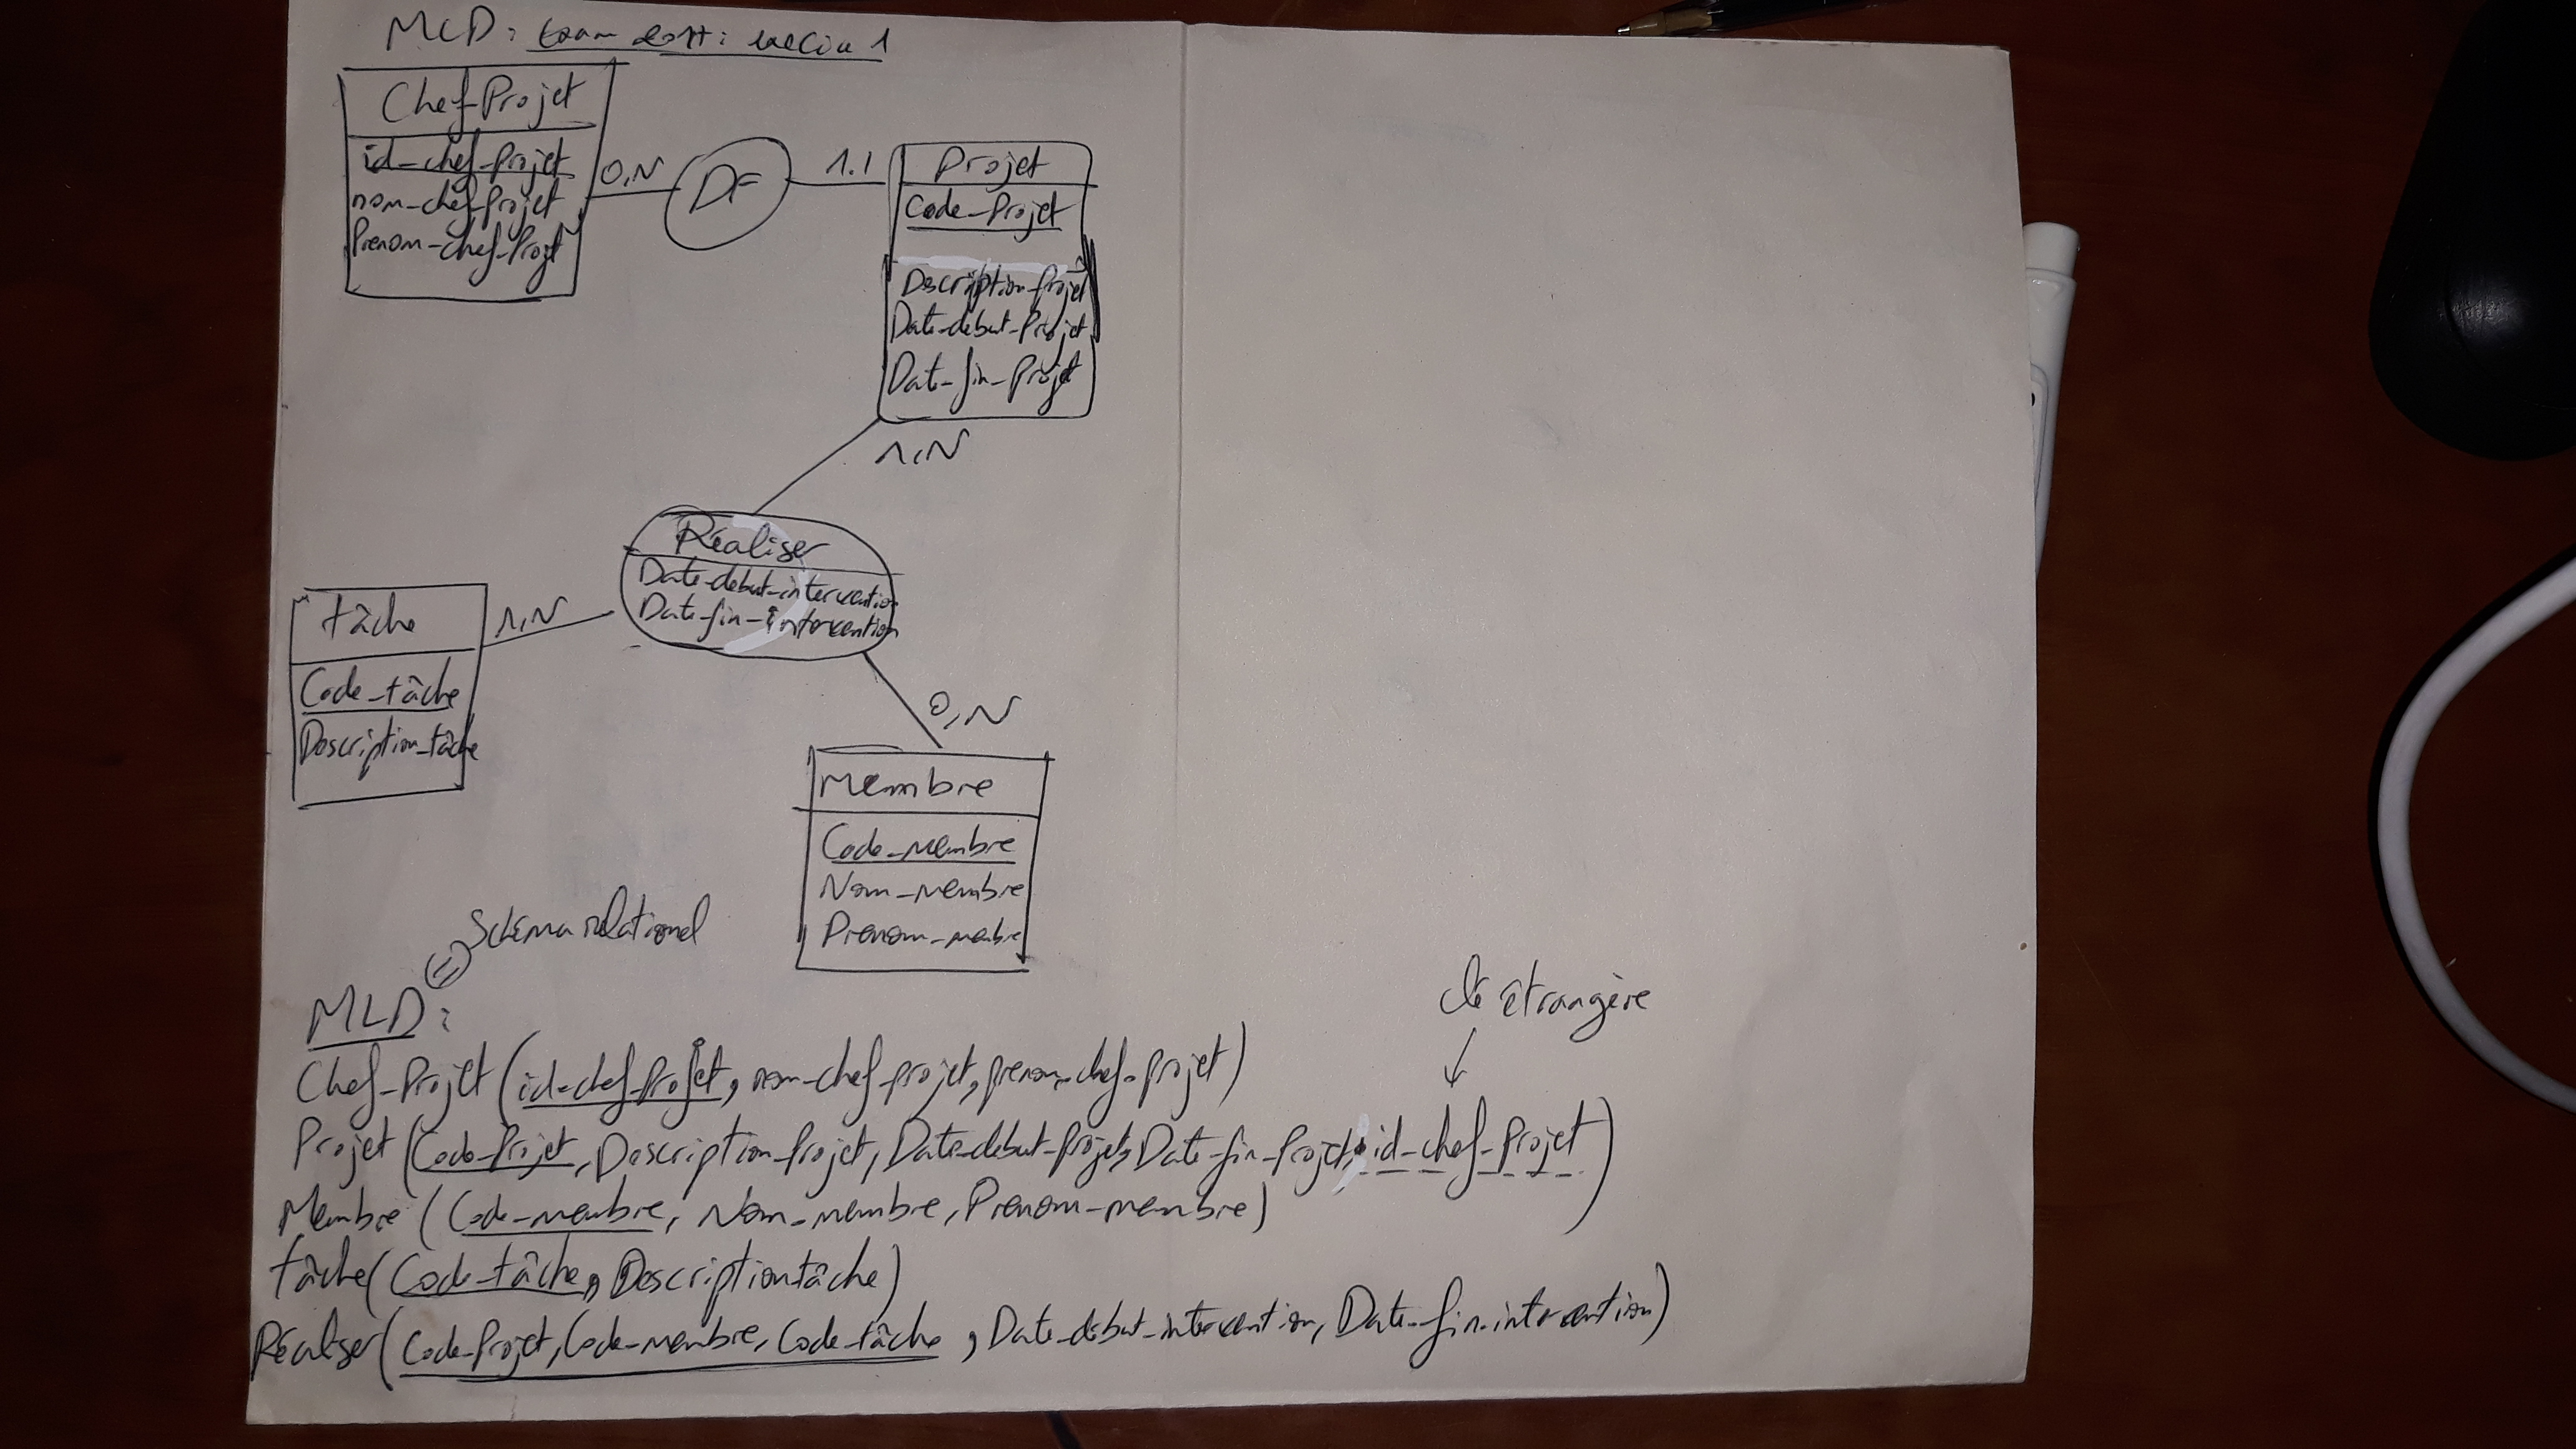 MCD:
Chef-Projet
id-chef-Projet
nom-chef-Projet
Prenom-chef-Projt
0,N
DF
1.1
Projet
Code-Projet
Description-Projet
Date-debut-Projet
Date-fin-Projet
1,N
Réaliser
Date-debut-intervention
Date-fin-intervention
1,N
tâche
Code-tâche
Description-tâche
0,N
Membre
Code-membre
Nom-membre
Prenom-membre
Schéma relationel
=
MLD:
clé étrangère
Chef-Projet (id-chef-Projet, nom-chef-projet, prenom-chef-projet)
Projet (Code-Projet, Description-Projet, Date-debut-Projet, Date-fin-Projet, id-chef-Projet)
Membre (Code-membre, Nom-membre, Prenom-membre)
tâche (Code-tâche, Description tâche)
Réaliser (Code-Projet, Code-membre, Code-tâche, Date-debut-intervention, Date-fin-intervention)